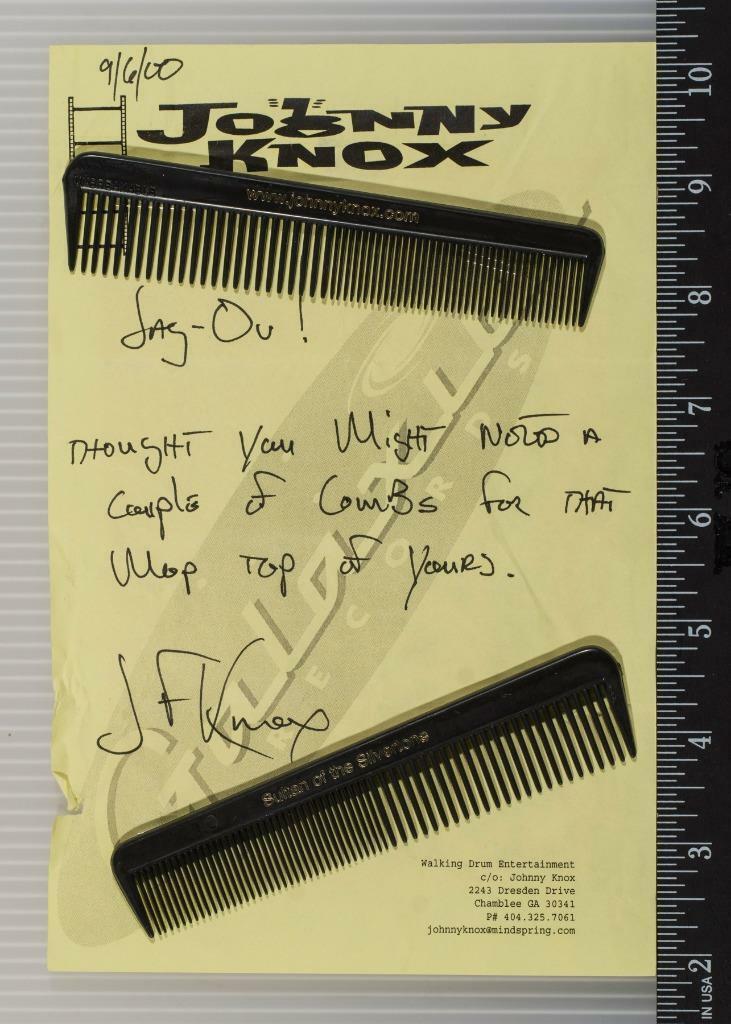 9/6/00
JOHNNY
KNOX
UNBREAKABLE
www.johnnyknox.com
Say-Ou!
THOUGHT You Might NEED A
Couple of Combs for THAT
Mop Top of Yours.
JFKnox
TULA-XLIX
RECORDS
Sultan of the Silvertone
Walking Drum Entertainment
c/o: Johnny Knox
2243 Dresden Drive
Chamblee GA 30341
P# 404.325.7061
johnnyknox@mindspring.com
10
9
8
7
6
5
4
3
2
IN USA